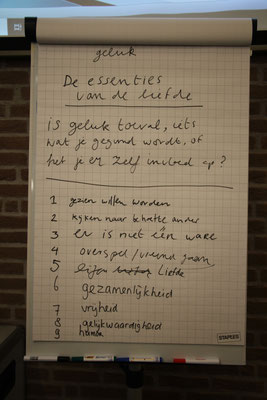 geluk
De essenties
van de liefde
is geluk toeval, iets
wat je gegund wordt, of
heb je er zelf invloed op?
1 gezien willen worden
2 kijken naar behoefte ander
3 er is niet één ware
4 overspel / vreemd gaan
5 eigen Liefde
6 gezamenlijkheid
7 vrijheid
8 gelijkwaardigheid
9 humor
STAPLES